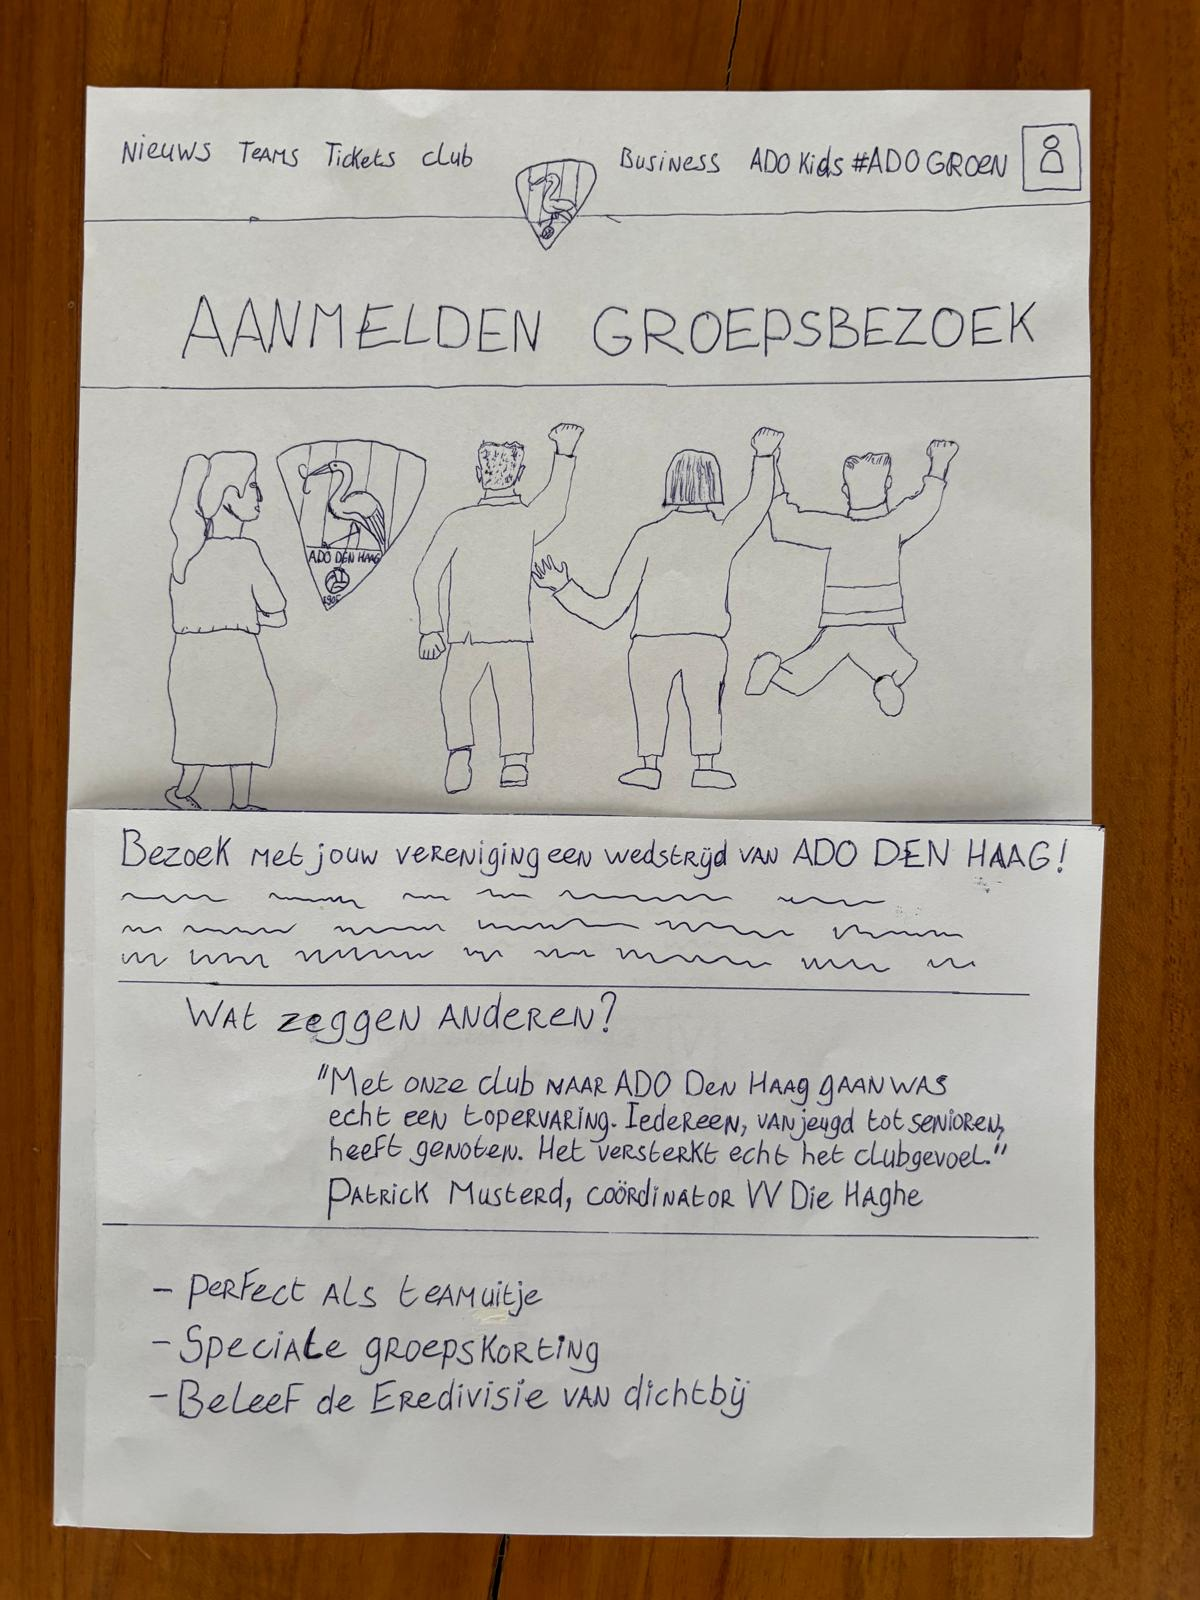 Nieuws Teams Tickets club Business ADO Kids #ADO GROEN
AANMELDEN GROEPSBEZOEK
ADO DEN HAAG
1905
Bezoek met jouw vereniging een wedstrijd van ADO DEN HAAG!
Wat zeggen anderen?
"Met onze club naar ADO Den Haag gaan was
echt een topervaring. Iedereen, van jeugd tot senioren,
heeft genoten. Het versterkt echt het clubgevoel."
Patrick Musterd, coördinator VV Die Haghe
- Perfect als teamuitje
- Speciale groepskorting
- Beleef de Eredivisie van dichtbij